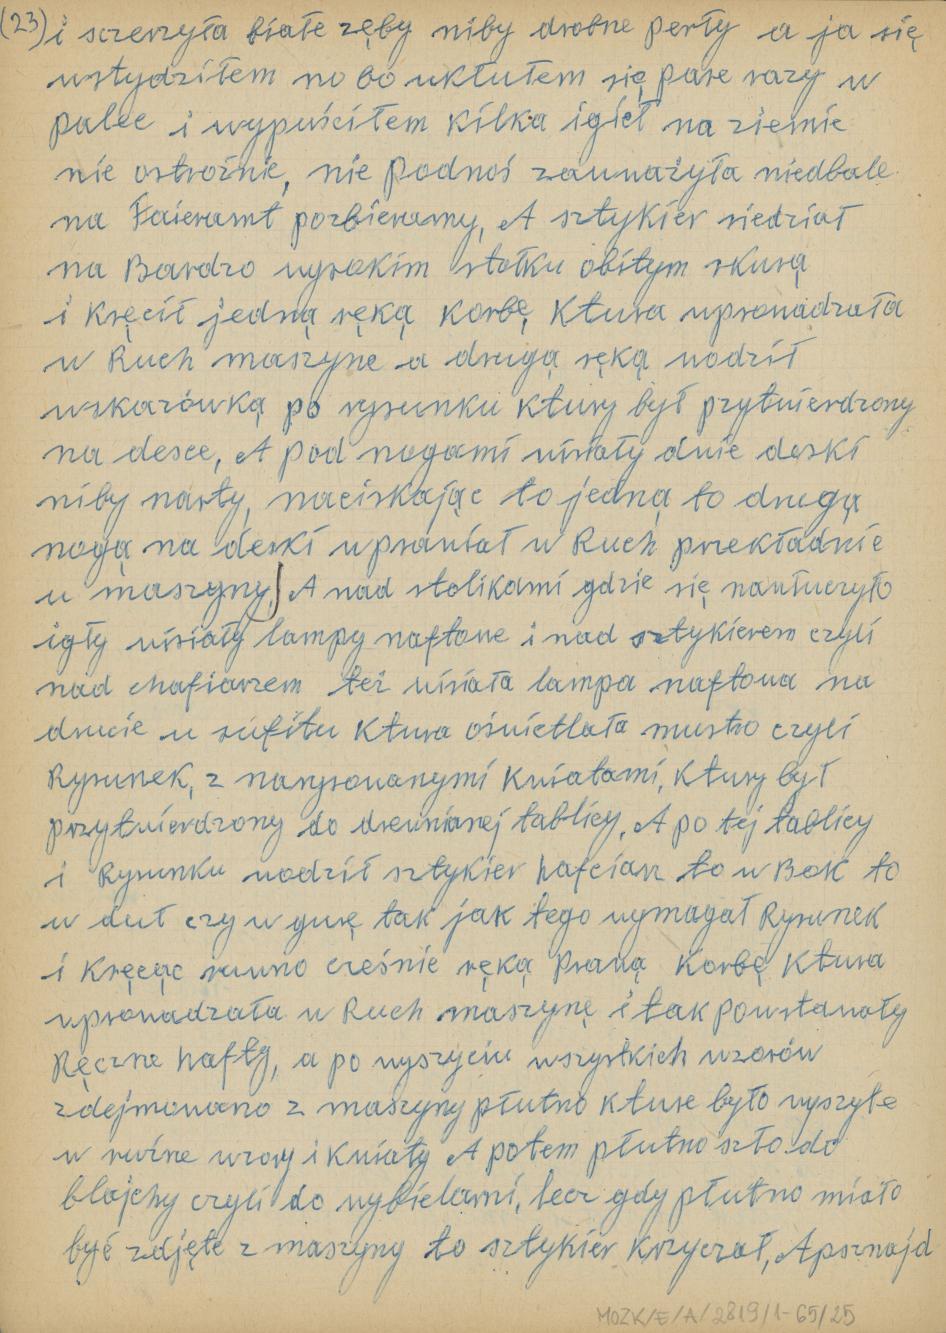 (23) i szczerzyła białe zęby niby drobne perły a ja się
wstydziłem no bo ukłułem się pare razy w
palec i wypuściłem kilka igieł na ziemie
nie ostrożnie, nie podnoś zauważyła niedbale
na Faieramt pozbieramy, A sztykier siedział
na Bardzo wysokim stołku obitym skurą
i Kręcił jedną ręką korbę, Ktura wprowadzała
w Ruch maszyne a drugą ręką wodził
wskazówką po rysunku ktury był przytwierdzony
na desce, A pod nogami wisiały dwie deski
niby narty, naciskając to jedną to drugą
nogą na deski wprawiał w Ruch przekładnie
w maszyny, A nad stolikami gdzie się nawluczyło
igły wisiały lampy naftowe i nad sztykierem czyli
nad chafiarzem też wisiała lampa naftowa na
drucie u sufitu Ktura oświetlała mustro czyli
Rysunek, z narysowanymi Kwiatami, ktury był
przytwierdzony do drewnianej tablicy, A po tej tablicy
i Rysunku wodził sztykier hafciarz to w Bok to
w duł czy w gurę tak jak tego wymagał Rysunek
i Kręcąc ruwno cześnie ręką Prawą Korbę Ktura
wprowadzała w Ruch maszynę i tak powstawały
Ręczne hafty, a po wyszyciu wszystkich wzorów
zdejmowano z maszyny płutno kture było wyszyte
w rużne wzory i Kwiaty A potem płutno szło do
blajchy czyli do wybielarni, lecz gdy płutno miało
być zdjęte z maszyny to sztykier Krzyczał, Apsznajd
MOZK/E/A/2819/1-65/25